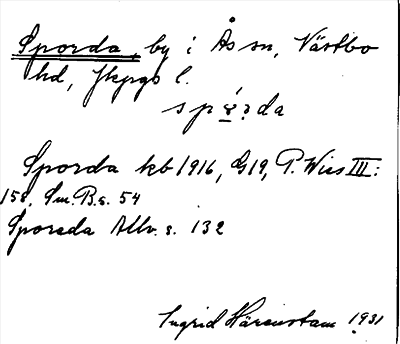 Sporda, by i Ås sn, Västbo
hd, Jkpgs l.
Sporda kb 1916, G19, P. Wies III:
158, Sm. B. s. 54
Sporda Allv. s. 132
Ingrid Härenstam 1931